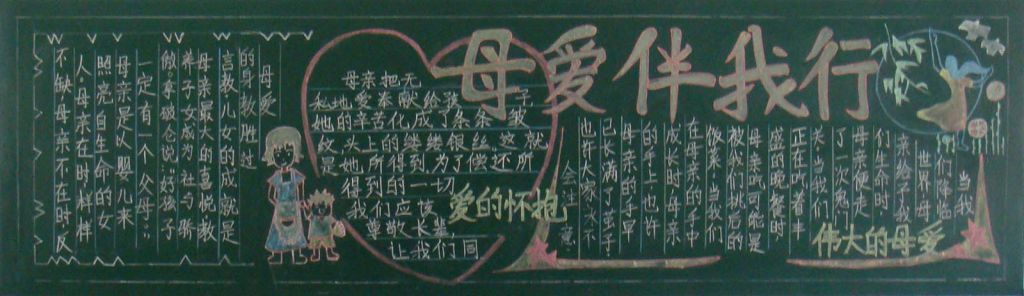 母爱伴我行
当我
们降临
世界.母
亲给予我
们生命时,
母亲便走
了一次鬼门
关.当我们
正在吃着丰
盛的晚餐时
母亲或可能是
被我们挑后的
饭菜.当我们
在母亲的手中
成长时.母亲
的手上.也许
母亲的手早
已长满了茧子.
也许大寒冰不
伟大的母爱
母亲把无
私地爱奉献给孩子
她的辛苦化成了条条皱
头上的缕缕银丝.这就
是她所得到为了偿还所
得到的一切
我们应该
尊敬长辈
让我们同
爱的怀抱
母爱
的身教胜过
言教儿女的成就是
母亲最大的喜悦,教
养子女成为
好孩子
一定有一个
母亲是从婴儿来
照亮自生命的女
人.母亲在时.样样
不缺母亲不在时.反